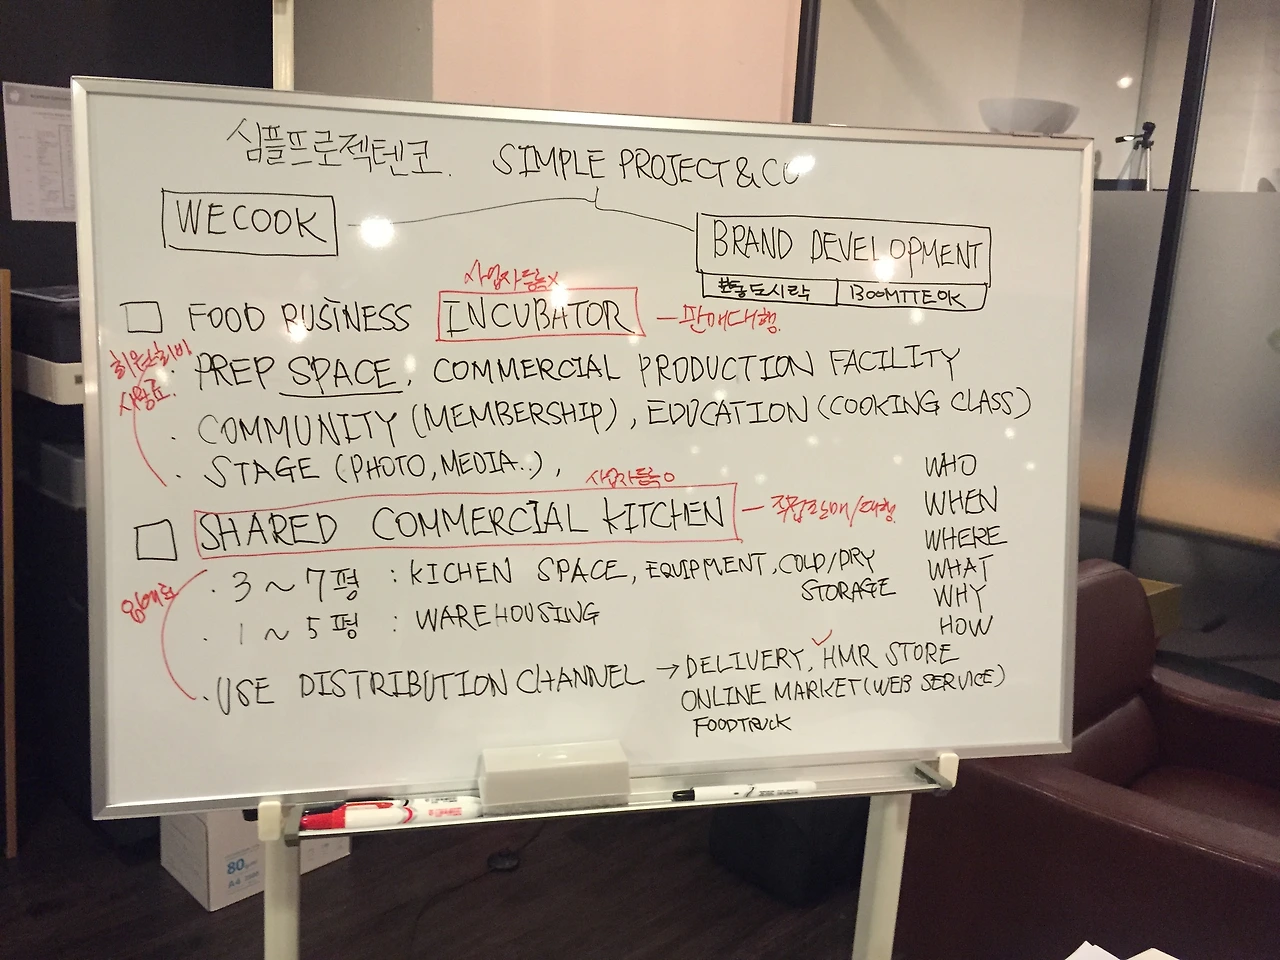 심플프로젝텐코. SIMPLE PROJECT & CO
WECOOK
BRAND DEVELOPMENT
도시락 BOOMTTEOK
사업자등록x
FOOD BUSINESS INCUBATOR - 판매대행.
사용료.
· PREP SPACE, COMMERCIAL PRODUCTION FACILITY
· COMMUNITY (MEMBERSHIP), EDUCATION (COOKING CLASS)
· STAGE (PHOTO, MEDIA..),
사업자등록o
SHARED COMMERCIAL KITCHEN - 직접판매/대행.
임대료
· 3 ~ 7평 : KICHEN SPACE, EQUIPMENT, COLD/DRY STORAGE
· 1 ~ 5평 : WAREHOUSING
· USE DISTRIBUTION CHANNEL → DELIVERY, HMR STORE
ONLINE MARKET (WEB SERVICE)
FOODTRUCK
WHO
WHEN
WHERE
WHAT
WHY
HOW
80
A4